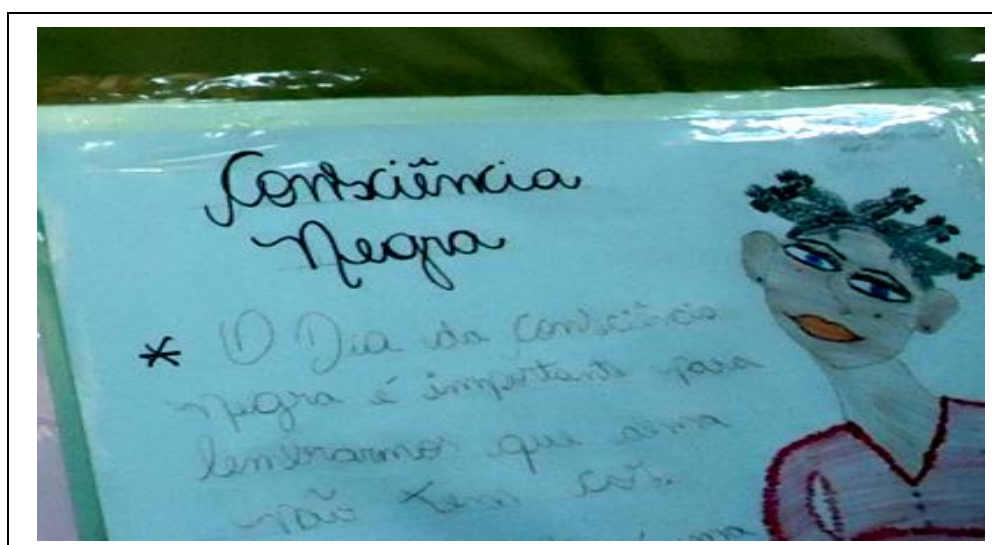 Consciência
Negra
* O Dia da Consciência
negra é importante para
lembrarmos que alma
não tem cor.
é uma